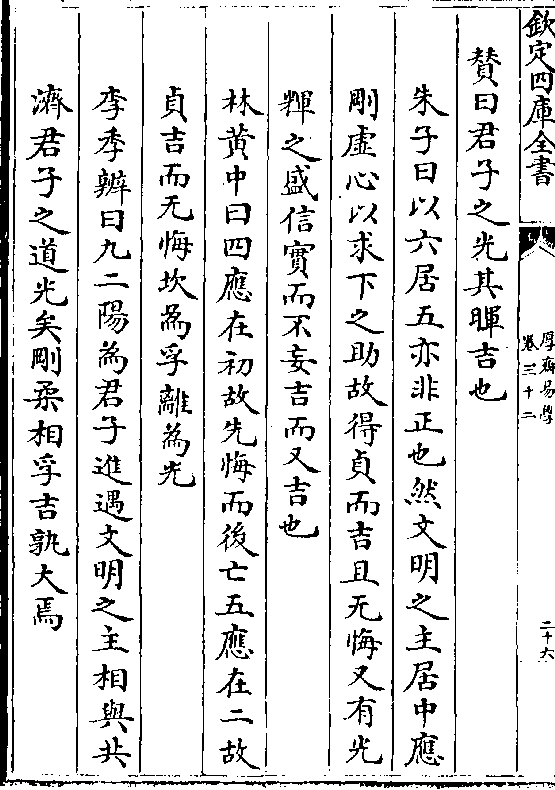 欽定四庫全書
厚齋易學
卷三十二
二十六
贊曰君子之光其暉吉也
朱子曰以六居五亦非正也然文明之主居中應
剛虛心以求下之助故得貞而吉且无悔又有光
輝之盛信實而不妄吉而又吉也
林黄中曰四應在初故先悔而後亡五應在二故
貞吉而无悔坎為孚離為光
李季辨曰九二陽為君子進遇文明之主相與共
濟君子之道光矣剛柔相孚吉孰大焉